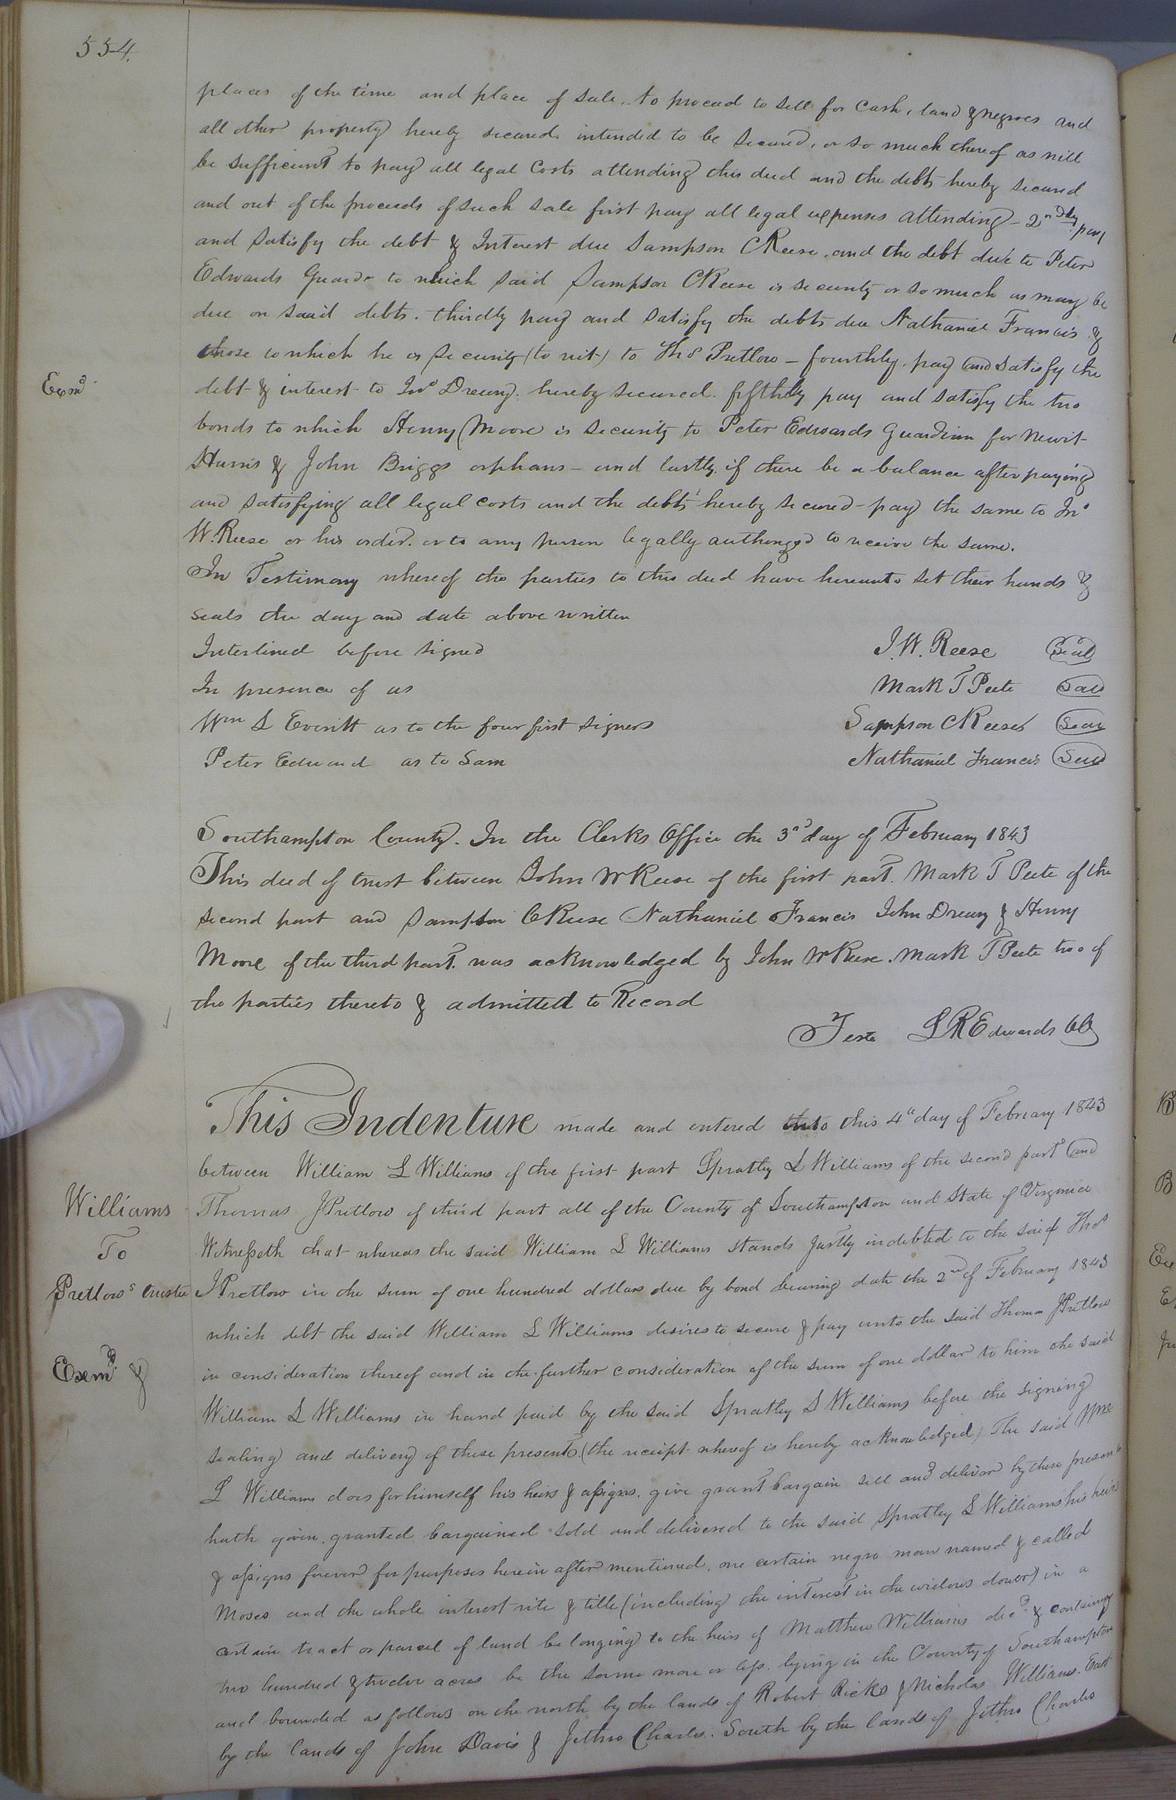 554.
places of the time and place of sale. to proceed to sell for cash, land & negroes and
all other property hereby secured intended to be secured, or so much thereof as will
be sufficient to pay all legal costs attending this deed and the debts hereby secured
and out of the proceeds of such sale first pay all legal expenses attending - 2ndly pay
and satisfy the debt & Interest due Sampson C Reese, and the debt due to Peter
Edwards Guardn to which said Sampson C Reese is security or so much as may be
due on said debts. thirdly pay and satisfy the debts due Nathaniel Francis &
those to which he is security (to wit) to Thos Pretlow - fourthly. pay and satisfy the
Exmd
debt & interest to Jno Drewry. hereby secured. fifthly pay and satisfy the two
bonds to which Henry Moore is security to Peter Edwards Guardian for Newit
Harris & John Briggs orphans - and lastly, if there be a balance after paying
and satisfying all legal costs and the debts hereby secured - pay the same to Jno
W. Reese or his order. or to any person legally authorized to receive the same.
In Testimony whereof the parties to this deed have hereunto set their hands &
seals the day and date above written
Interlined before signed J. W. Reese Seal
In presence of us Mark T Peete Seal
Wm L Everitt as to the four first signers Sampson C Reese Seal
Peter Edward as to Sam Nathaniel Francis Seal
Southampton County. In the Clerks Office the 3rd day of February 1843
This deed of trust between John W Reese of the first part. Mark T Peete of the
second part and Sampson C Reese Nathaniel Francis John Drewry & Henry
Moore of the third part. was acknowledged by John W Reese. Mark T Peete two of
the parties thereto & admitted to Record
Teste L R Edwards Clk
This Indenture made and entered into this 4th day of February 1843
between William L Williams of the first part Spratley L Williams of the second part and
Williams
To
Pretlows trustee
Thomas J Pretlow of third part all of the County of Southampton and State of Virginia
Witnesseth that whereas the said William L Williams stands justly indebted to the said Thos
J Pretlow in the sum of one hundred dollars due by bond bearing date the 2nd of February 1843
which debt the said William L Williams desires to secure & pay unto the said Thomas J Pretlow
Exmd &
in consideration thereof and in the further consideration of the sum of one dollar to him the said
William L Williams in hand paid by the said Spratley L Williams before the signing
sealing and delivery of these presents (the receipt whereof is hereby acknowledged) The said Wm
L Williams does for himself his heirs & assigns. give grant bargain sell and deliver by these presents
hath given. granted bargained sold and delivered to the said Spratley L Williams his heirs
& assigns forever for purposes herein after mentioned. one certain negro man named & called
Moses and the whole interest rite & title (including the interest in the widows dower) in a
certain tract or parcel of land belonging to the heirs of Matthew Williams decd & containing
two hundred & twelve acres be the same more or less. lying in the County of Southampton
and bounded as follows on the north by the lands of Robert Ricks & Nicholas Williams. East
by the lands of John Davis & Jethro Charles. South by the lands of Jethro Charles